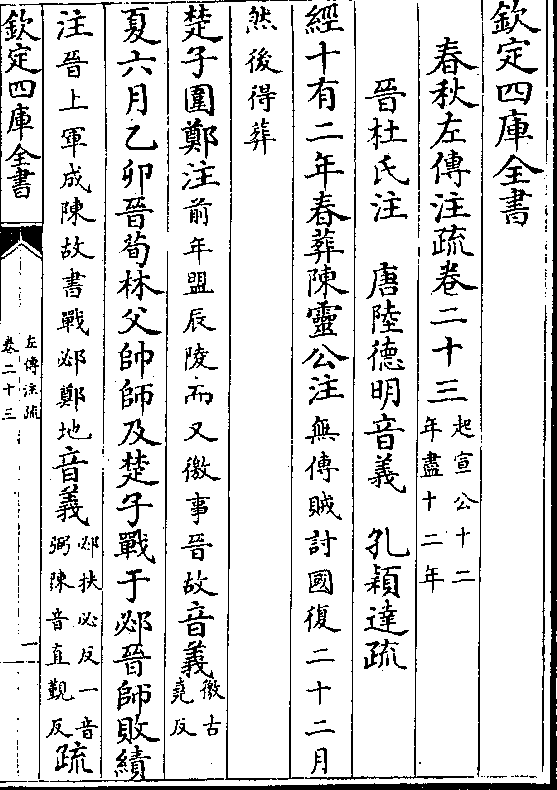 欽定四庫全書
春秋左傳注疏卷二十三
起宣公十二
年盡十二年
晉杜氏注　唐陸德明音義　孔穎達疏
經十有二年春葬陳靈公注無傳賊討國復二十二月
然後得葬
楚子圍鄭注前年盟辰陵而又徼事晉故音義
徼古
堯反
夏六月乙卯晉荀林父帥師及楚子戰于邲晉師敗績
注晉上軍成陳故書戰邲鄭地音義
邲扶必反一音
弼陳音直覲反
疏
欽定四庫全書
左傳注疏
卷二十三
一